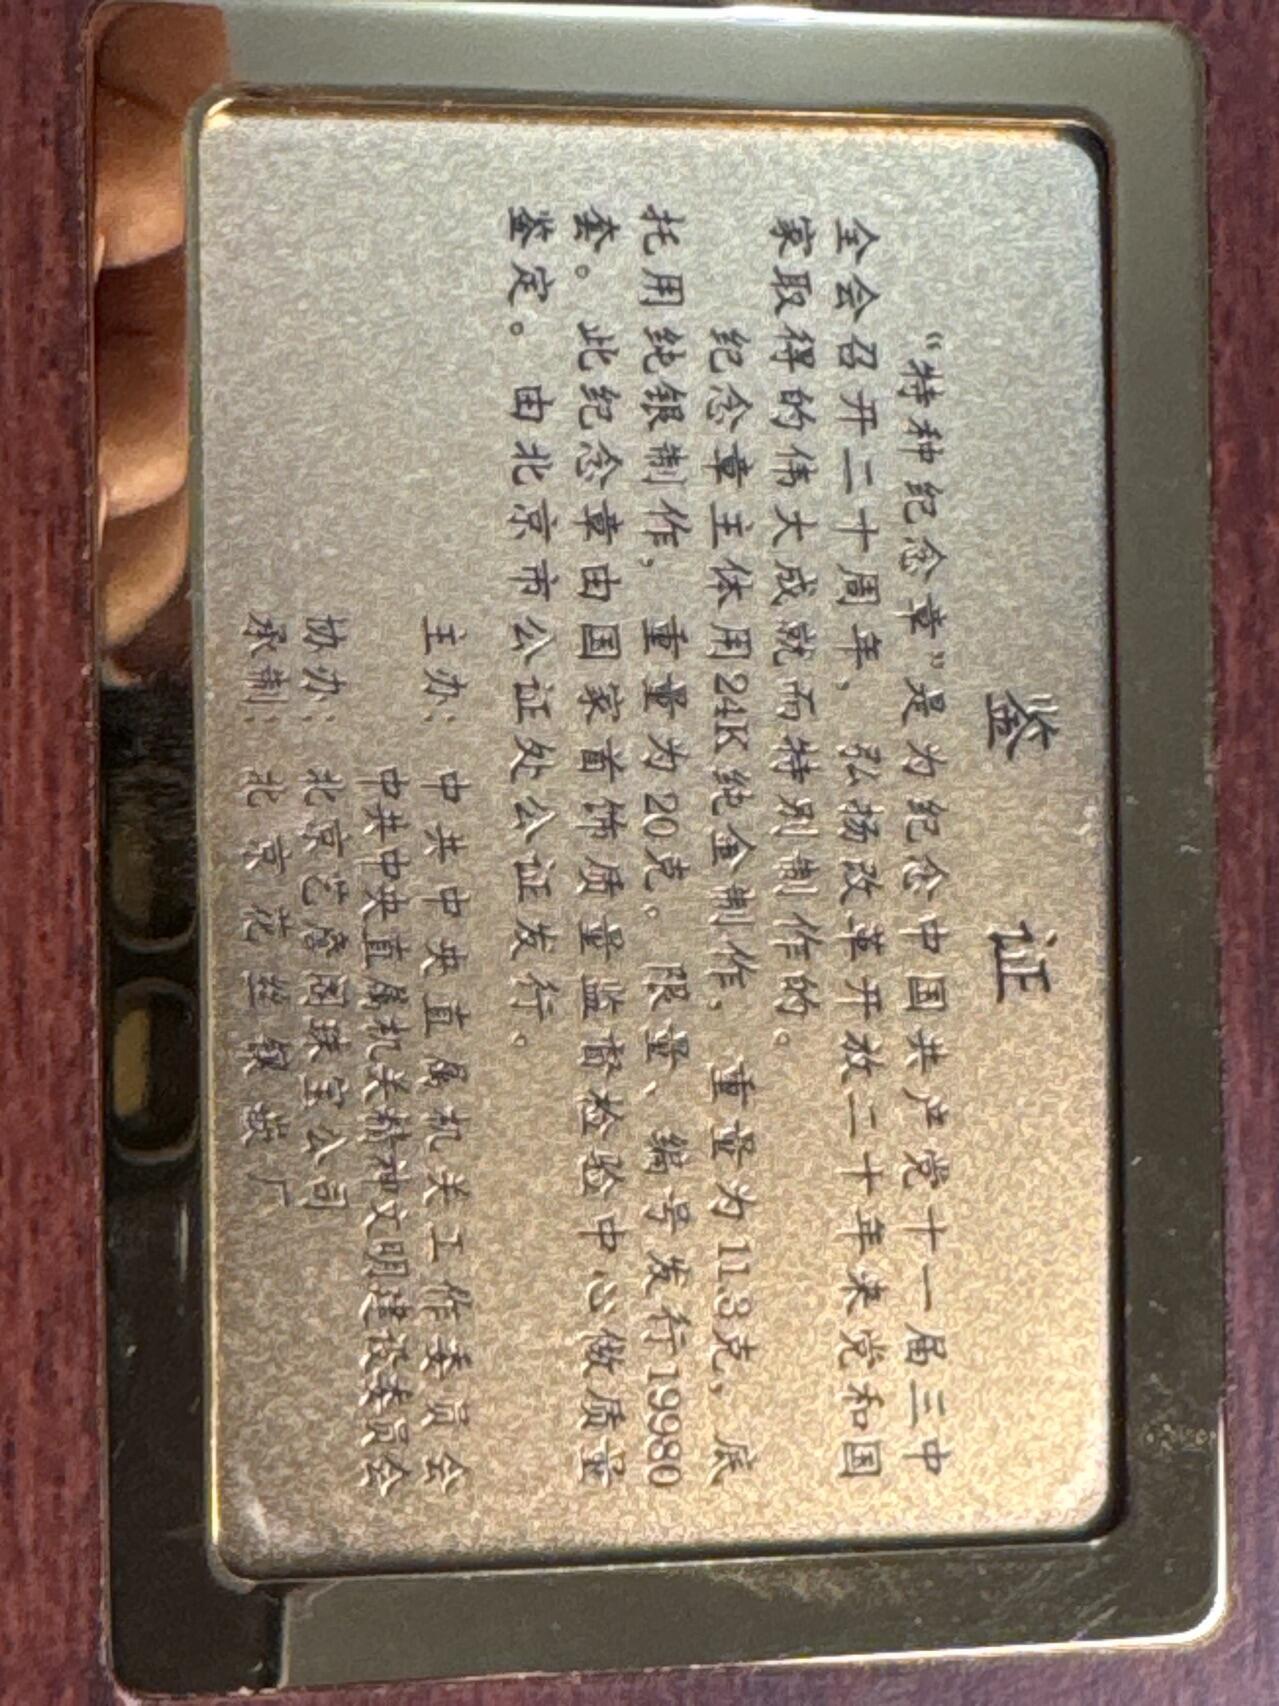 鉴 证
“特种纪念章”是为纪念中国共产党十一届三中
全会召开二十周年，弘扬改革开放二十年来党和国
家取得的伟大成就而特别制作的。
纪念章主体用24K纯金制作，重量为11.3克，底
托用纯银制作，重量为20克。限量、编号发行19980
套。此纪念章由国家首饰质量监督检验中心做质量
鉴定。由北京市公证处公证发行。
主办：中共中央直属机关工作委员会
中共中央直属机关精神文明建设委员会
协办：北京艺詹阁珠宝公司
承制：北京花丝镶嵌厂